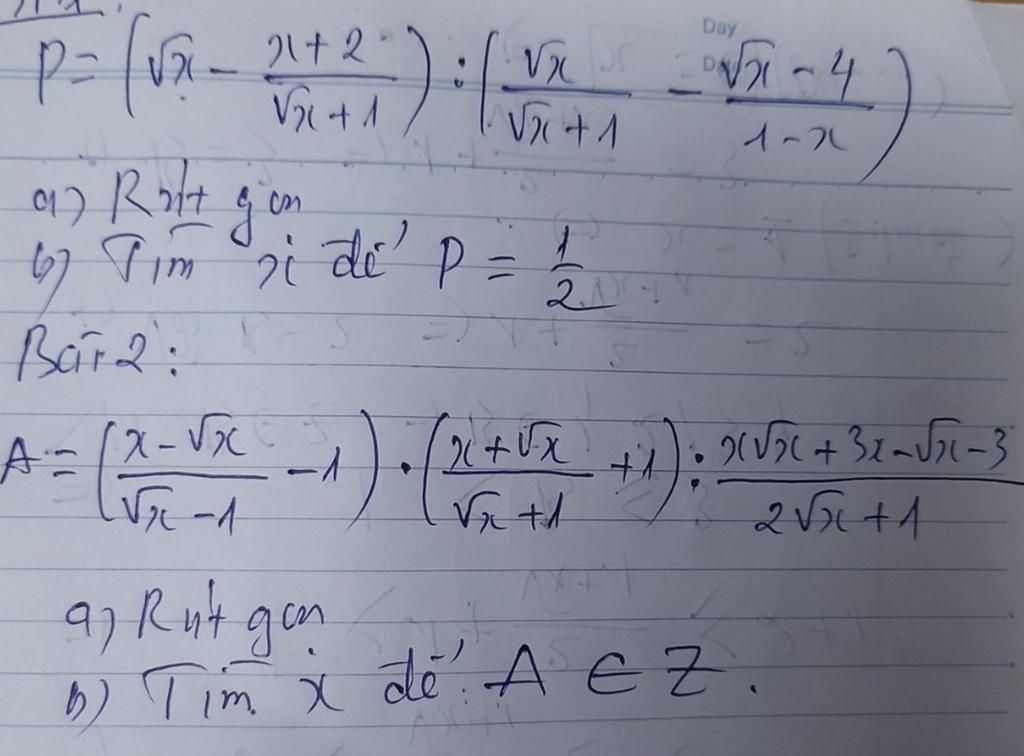 Day
P = (√x - \frac{x+2}{√x+1}) : (\frac{√x}{√x+1} - \frac{√x-4}{1-x})
a) Rút gọn
b) Tìm x để P = \frac{1}{2}
Bài 2:
A = (\frac{x-√x}{√x-1} - 1) . (\frac{x+√x}{√x+1} + 1) : \frac{x√x+3x-√x-3}{2√x+1}
a) Rút gọn
b) Tìm x để A ∈ Z.